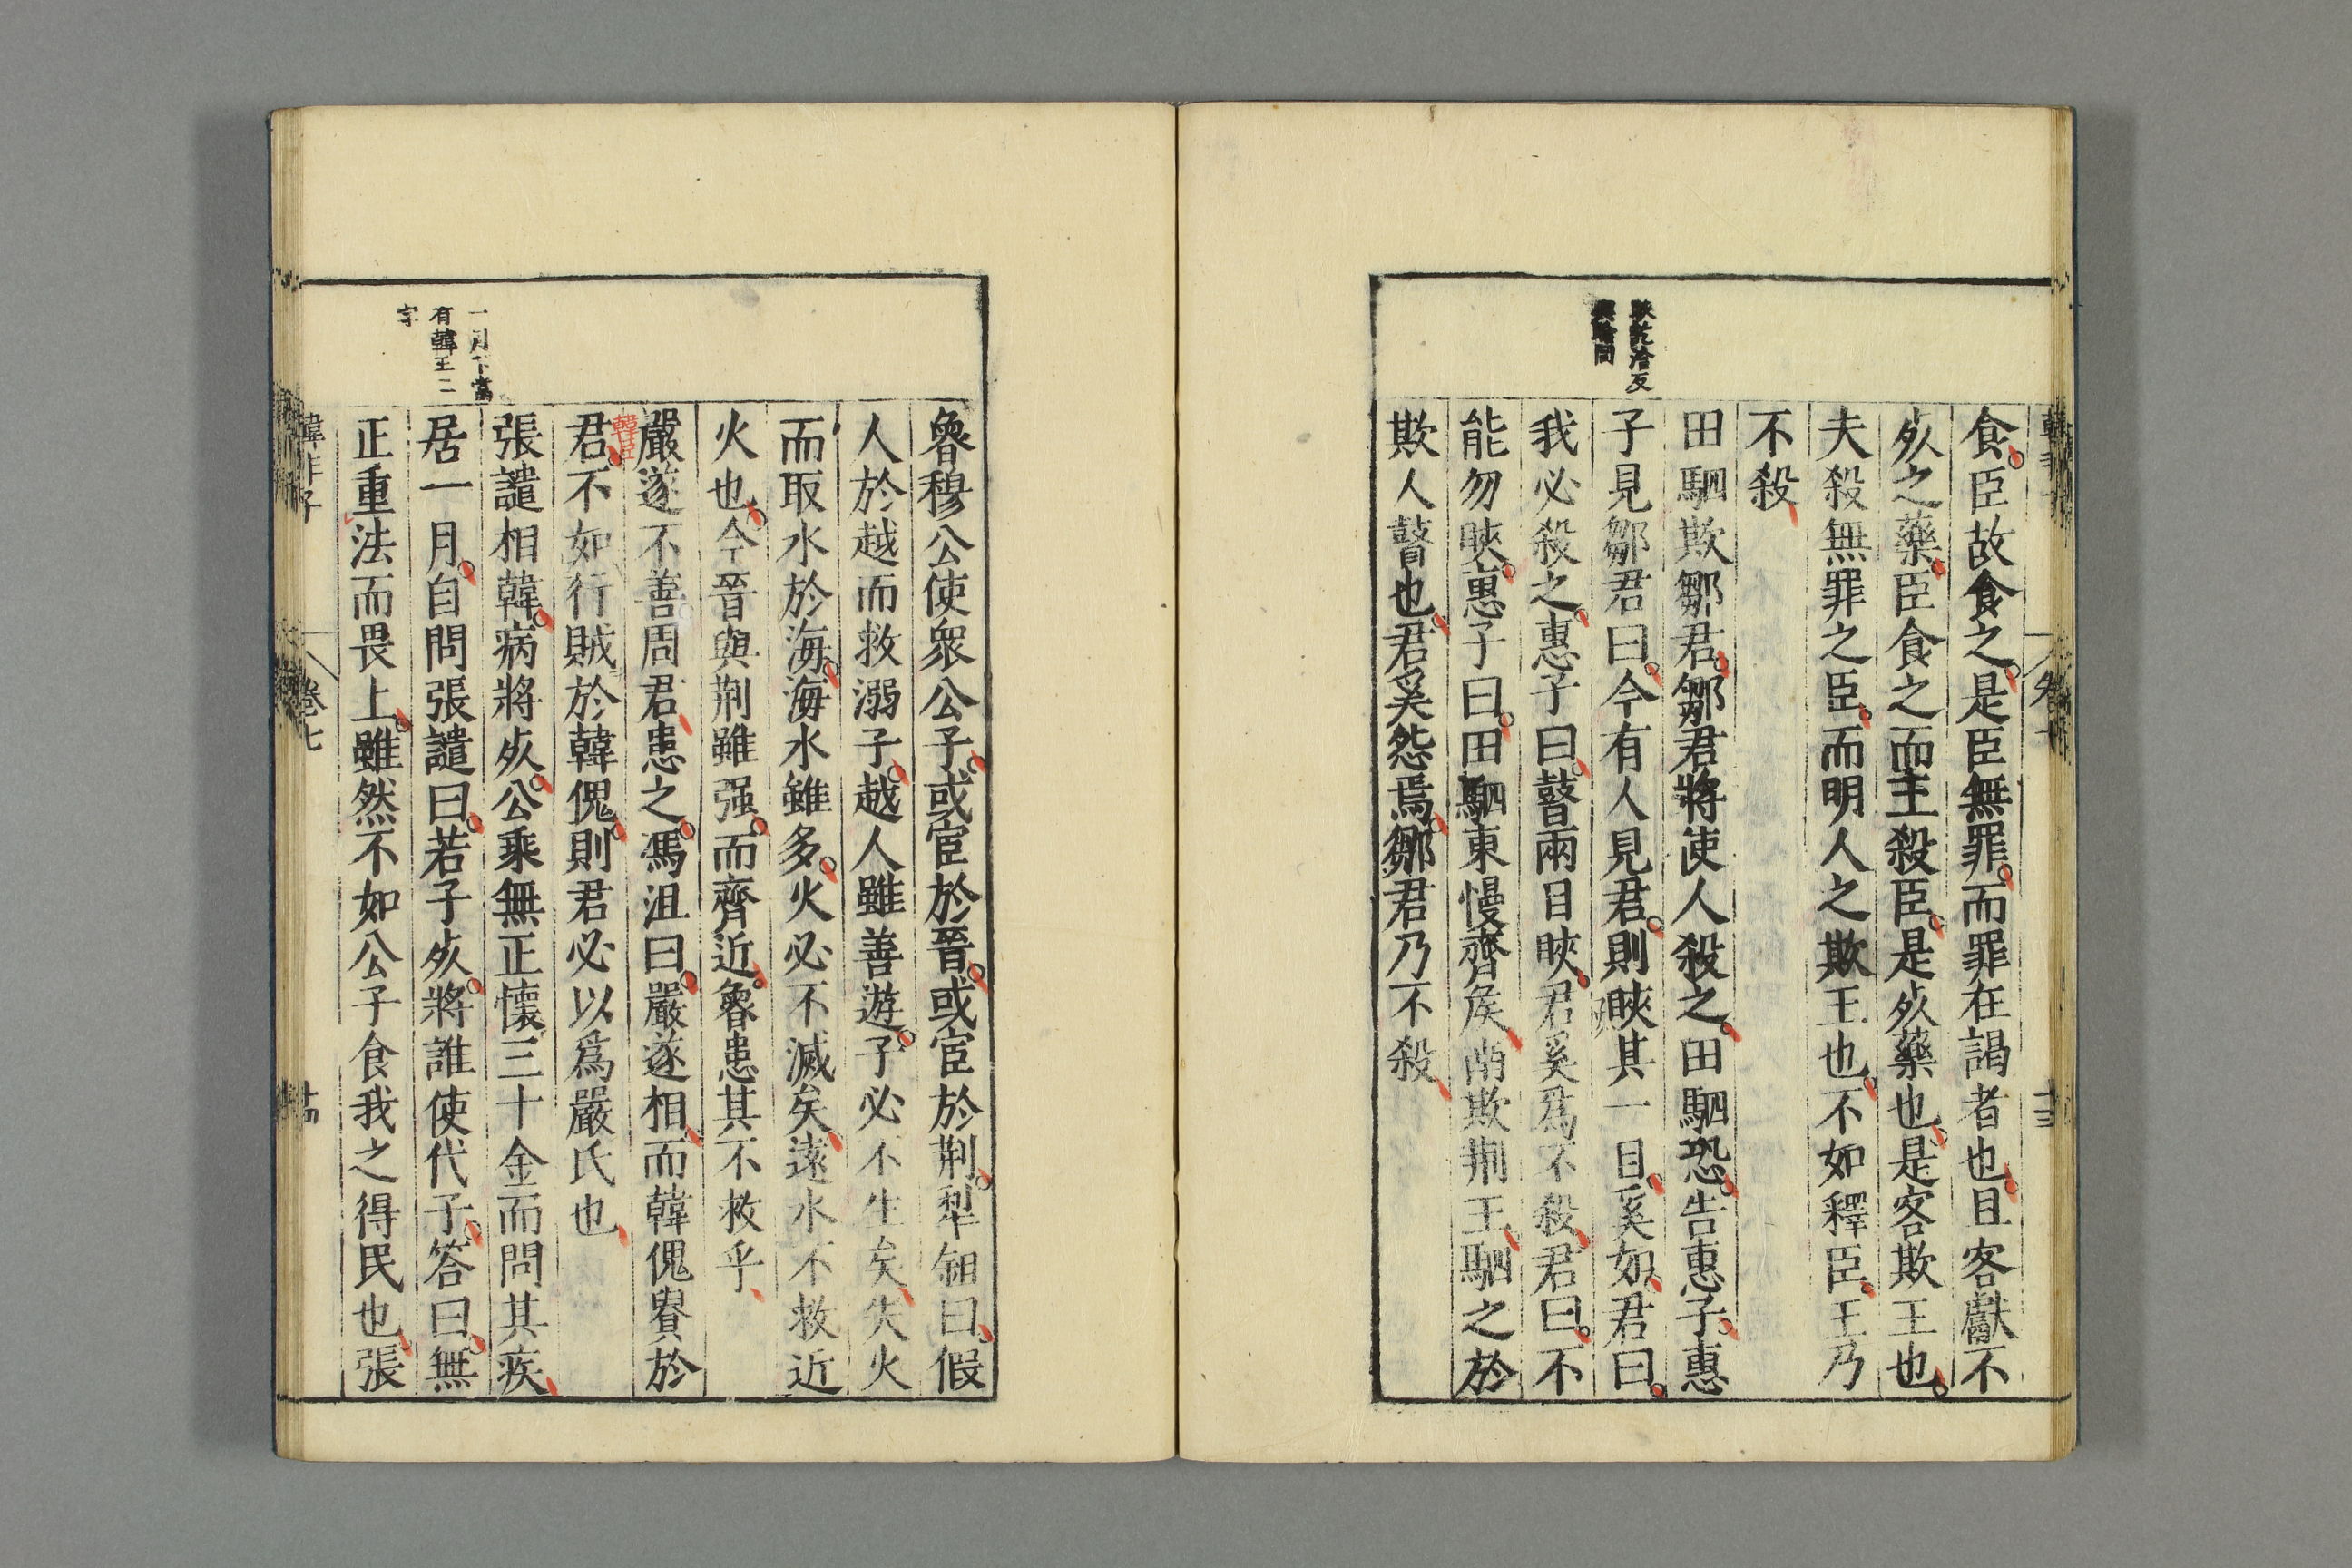 食。臣故食之。是臣無罪。而罪在謁者也。且客獻不
死之藥。臣食之而主殺臣。是死藥也。是客欺王也。
夫殺無罪之臣。而明人之欺王也。不如釋臣。王乃
不殺
田駟欺鄒君。鄒君將使人殺之。田駟恐。告惠子。惠
子見鄒君曰。今有人見君。則䀹其一目。奚如。君曰。
我必殺之。惠子曰。瞽兩目䀹。君奚爲不殺。君曰。不
能勿䀹。惠子曰。田駟東慢齊侯。南欺荆王。駟之於
欺人瞽也。君奚怨焉。鄒君乃不殺
魯穆公使衆公子。或宦於晉。或宦於荆。犁鉏曰。假
人於越而救溺子。越人雖善遊。子必不生矣。失火
而取水於海。海水雖多。火必不滅矣。遠水不救近
火也。今晉與荆雖强。而齊近。魯患其不救乎
嚴遂不善周君患之。馮沮曰。嚴遂相。而韓傀貴於
君。不如行賊於韓傀。則君必以爲嚴氏也
張譴相韓。病將死。公乘無正懷三十金而問其疾
居一月。自問張譴曰。若子死。將誰使代子。答曰。無
正重法而畏上。雖然不如公子食我之得民也。張
一月下當
有韓王二
字
韓非子
卷七
十四